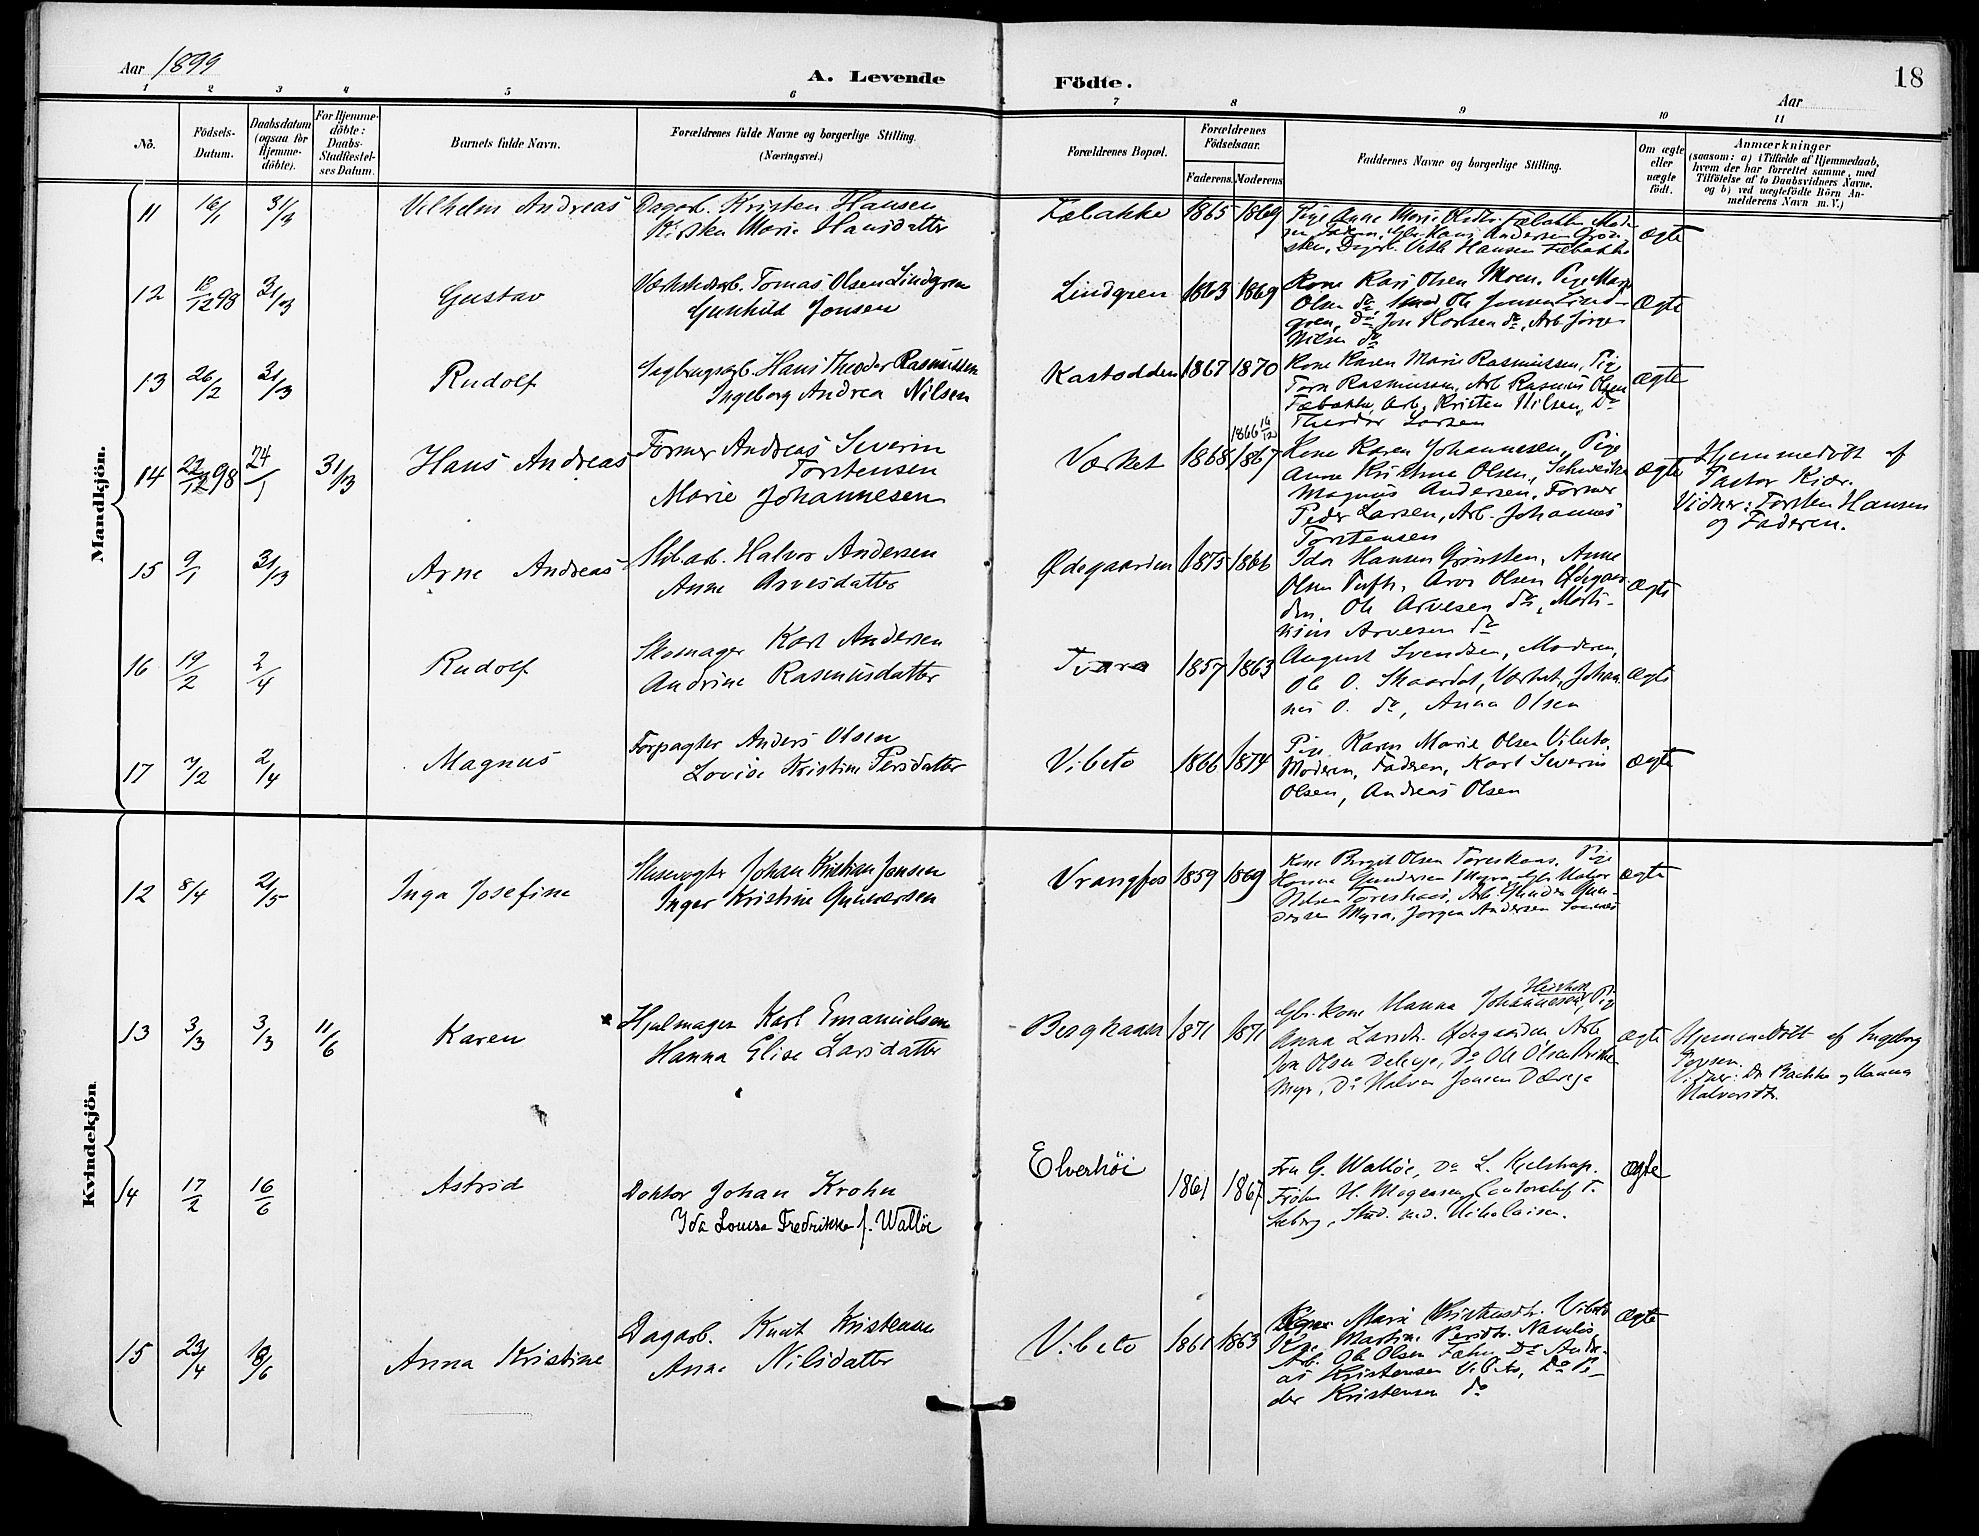 Aar 1899
A. Levende
Födte.
18
Aar
1 2 3 4 5 6 7 8 9 10 11
No.
Födsels-
Datum.
Daabsdatum
(ogsaa for
Hjemme-
döbte).
For Hjemme-
döbte:
Daabs-
Stadfæstel-
ses Datum.
Barnets fulde Navn.
Forældrenes fulde Navne og borgerlige Stilling.
(Næringsvei.)
Forældrenes Bopæl.
Forældrenes
Födselsaar.
Faderens. Moderens
Faddernes Navne og borgerlige Stilling.
Om ægte
eller
uægte
födt.
Anmærkninger
(saasom: a) i Tilfælde af Hjemmedaab,
hvem der har forrettet samme, med
Tilföielse af to Daabsvidners Navne.
og b) ved uægtefödte Börn An-
melderens Navn m. V.)
Mandkjön.
11 16/1 31/3 Vilhelm Andreas Dagarb. Kristen Hansen
Kirsten Marie Hansdatter
Fæbakke 1865 1869 Pige Anne Marie Olsdtr. Fæbakke
Dagarb. Hansen Fæbakke
ægte
12 12 98 31/3 Gustav Værkstedarb. Tomas Olsen Lindgren
Gunhild Jonsen
Lindgren 1863 1869 Kone Kari Olsen Moen. Pige
Olsen do, Smed Ole Jensen Lind-
gren, do Jon Karlsen do, Arb Jörgen
Nilsen do
ægte
13 26/2 31/3 Rudolf Sagbrugsarb. Hans Theodor Rasmussen
Ingeborg Andrea Nilsen
Kastodden 1867 1870 Kone Karen Marie Rasmussen, Pige
Rasmussen, Arb Rasmus Olsen
Fæbakke, Arb, Kristen Nilsen, Do
Theodor Larsen
ægte
14 22/12 98 24/1 31/3 Hans Andreas Former Andreas Severin
Torstensen
Marie Johannesen
Værket 1868 1867 Kone Karen Johannesen, Pige
1866
Anne Kristine Olsen,
Magnus Andersen, Former
Peder Larsen, Arb. Johannes
Torstensen
ægte
Hjemmedöbt af
Pastor Kiær.
Vidner: Torsten Hansen
og Faderen.
15 9/1 31/3 Arne Andreas Halvor Andersen
Anne Arvesdatter
Ødegaarden 1875 1866 Ida Hansen Grönsten, Anne
Olsen Arve Olsen Ødegaar-
den, Ole Arvesen do, Marti-
nius Arvesen do
ægte
16 19/2 2/4 Rudolf Skomager Karl Andersen
Andrine Rasmusdatter
Tvara 1857 1863 August Svendsen, Moderen,
Ole O. Skaardal, Værket, Johan-
nes O. do, Anna Olsen
ægte
17 7/2 2/4 Magnus Forpagter Anders Olsen
Lovise Kristine Persdatter
Vibeto 1866 1874 Pige Karen Marie Olsen Vibeto
Moderen, Faderen, Karl Severin
Olsen, Andreas Olsen
ægte
Kvindekjön
12 8/4 21/5 Inga Josefine Slusevogter Johan Kristian Jansen
Inger Kristine Gundersen
Vrangfos 1859 1869 Kone Birgit Olsen Pige
Hanna Gundersen Myra Halvor
Nilsen Arb Gunder Gun-
dersen Myra, Jörgen Andersen
ægte
13 3/3 3/3 11/6 Karen Hjulmager Karl Emanuelsen
Hanna Elise Larsdatter
Berghaven 1871 1871 Gbr. kone Hanna Johannesen, Pige
Anna Larsdtr. Ødegaarden Arb
Jon Olsen Do Ole Olsen
Myr, Do Halvor Jonsen
ægte
Hjemmedöbt af Ingeborg
Jonsen.
Vidner: Dr Backke og Hanna
Halvorsdtr.
14 17/2 16/6 Astrid Doktor Johan Krohn
Ida Louise Fredrikke f. Wallöe
Elverhöi 1861 1867 Fru G. Wallöe, Do L. Kjelstrup.
Fröken H. Mogensen, Contorchef T.
Stud. med. Nikolaisen.
ægte
15 23/4 18/6 Anna Kristine Dagarb. Knut Kristensen
Anne Nilsdatter
Vibeto 1861 1863 Marie Kristensdtr. Vibeto
Martine Persdtr.
Arb. Ole Olsen Do Andre-
as Kristensen Vibeto, Do Pe-
der Kristensen do
ægte